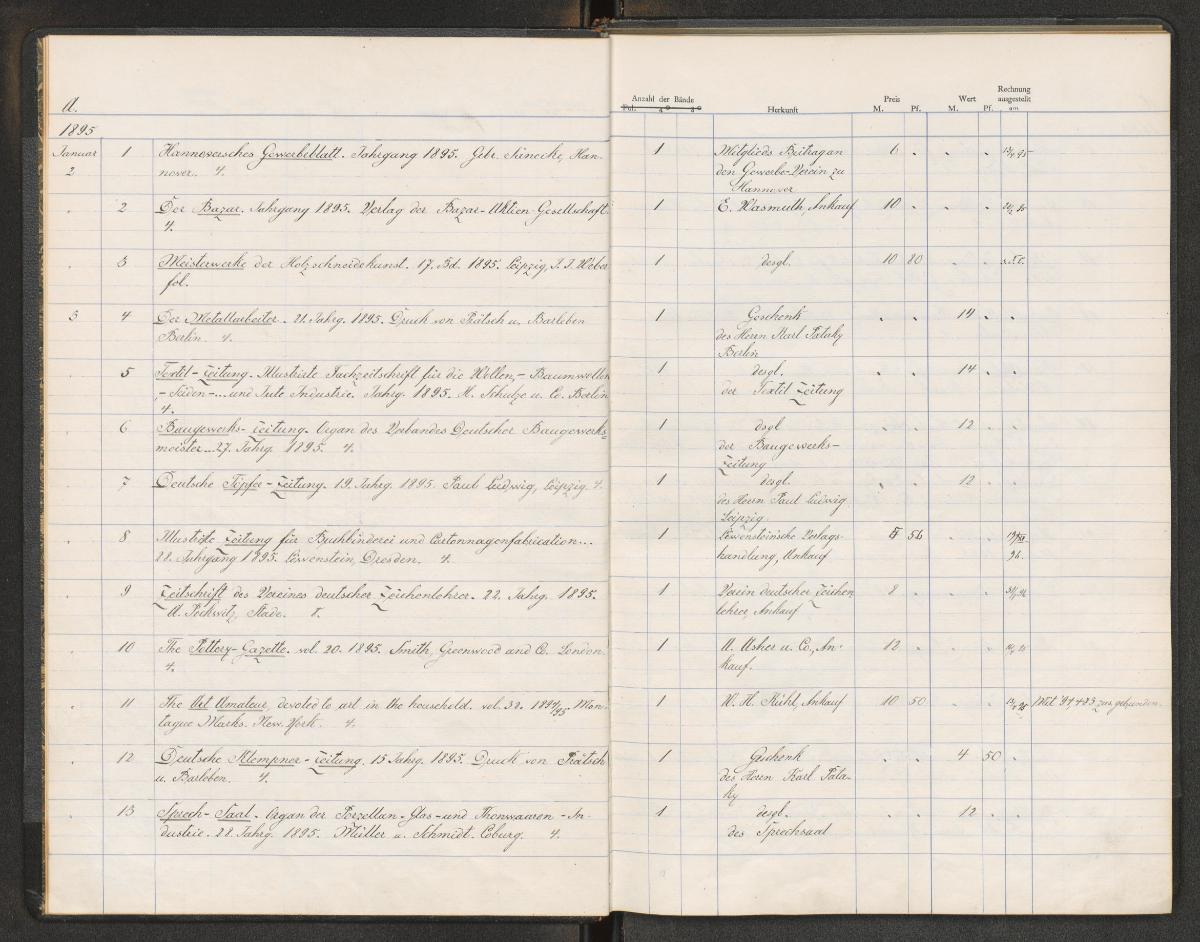 A.
1895
Anzahl der Bände
Fol. 4° 8°
Herkunft
Preis
M. Pf.
Wert
M. Pf.
Rechnung
ausgestellt
am
Januar 1 Hannoversches Gewerbeblatt. Jahrgang 1895. Gebr. Jänecke, Han- 1 Mitglieds Beitrag an 6 . . .
2 nover. 4. den Gewerbe-Verein zu
Hannover
. 2 Der Bazar. Jahrgang 1895. Verlag der Bazar-Aktien Gesellschaft. 1 E. Wasmuth, Ankauf 10 . . .
4.
. 3 Meisterwerke der Holzschneidekunst. 17. Bd. 1895. Leipzig, J. J. Weber 1 desgl. 10 80 . .
fol.
3 4 Der Metallarbeiter. 21. Jahrg. 1895. Druck von Rätsch u. Barleben 1 Geschenk . . 14 . .
Berlin. 4. des Herrn Karl Pataky
Berlin
. 5 Textil-Zeitung. Illustrirte Fachzeitschrift für die Wollen,- Baumwollen 1 desgl. . . 14 . .
,- Seiden-... und Jute Industrie. Jahrg. 1895. H. Schulze u. Co. Berlin der Textil Zeitung
4.
. 6 Baugewerks-Zeitung. Organ des Verbandes Deutscher Baugewerks- 1 dsgl . . 12 . .
meister... 27. Jahrg. 1895. 4. der Baugewerks-
Zeitung
. 7 Deutsche Töpfer-Zeitung. 19. Jahrg. 1895. Paul Ludwig, Leipzig. 4. 1 desgl. . . 12 . .
des Herrn Paul Ludwig
Leipzig.
. 8 Illustrirte Zeitung für Buchbinderei und Cartonnagenfabrication... 1 Löwensteinsche Verlags- 56 . .
28. Jahrgang 1895. Löwenstein, Dresden. 4. handlung, Ankauf 96.
. 9 Zeitschrift des Vereines deutscher Zeichenlehrer. 22. Jahrg. 1895. 1 Verein deutscher Zeichen 8 . . .
A. Pockwitz, Stade. 8. lehrer, Ankauf
. 10 The Pottery-Gazette. vol. 20. 1895. Smith, Greenwood and Co. London. 1 A. Asher u. Co., An- 12 . . .
4. kauf.
. 11 The Art Amateur, devoted to art in the household. vol. 32. 1894/95 Mon- 1 W. H. Kühl, Ankauf 10 50 . . Mit 94,483 zus. gebunden.
tague Marks. New York. 4.
. 12 Deutsche Klempner-Zeitung. 15 Jahrg. 1895. Druck von Rätsch 1 Geschenk . . 4 50 .
u. Barleben. 4. des Herrn Karl Pata-
ky
. 13 Sprech-Saal. Organ der Porzellan- Glas- und Thonwaaren-In- 1 desgl. . . 12 . .
dustrie. 28. Jahrg. 1895. Müller u. Schmidt. Coburg. 4. des Sprechsaal